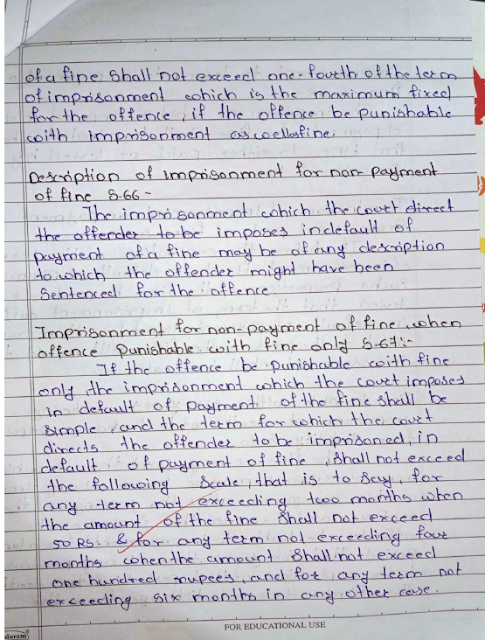 of a fine shall not exceed one-fourth of the term
of imprisonment which is the maximum fixed
for the offence, if the offence be punishable
with imprisonment as well as fine.
Description of imprisonment for non-payment
of fine S.66 -
The imprisonment which the court direct
the offender to be imposes in default of
payment of a fine may be of any description
to which the offender might have been
sentenced for the offence
Imprisonment for non-payment of fine, when
offence Punishable with fine only S-67:-
If the offence be punishable with fine
only, the imprisonment which the court imposes
in default of Payment of the fine shall be
simple, and the term for which the court
directs the offender to be imprisoned, in
default of payment of fine, shall not exceed
the following scale, that is to say, for
any term not exceeding two months when
the amount of the fine shall not exceed
50 RS. & for any term not exceeding four
months when the amount shall not exceed
one hundred rupees, and for any term not
exceeding six months in any other case.
FOR EDUCATIONAL USE